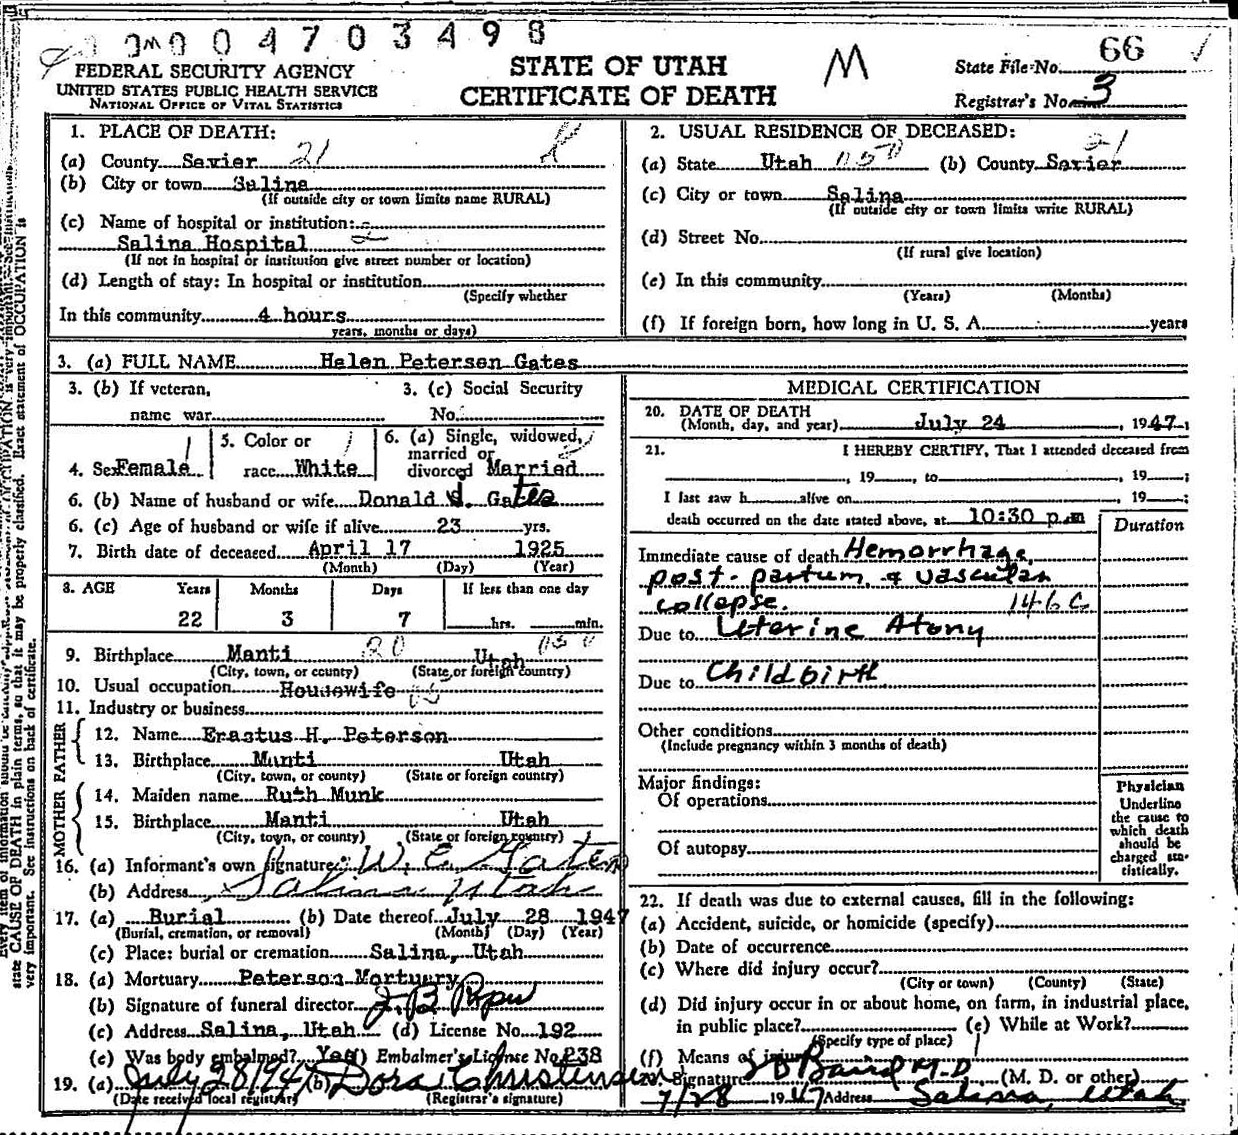 0 0 4 7 0 3 4 9 8
FEDERAL SECURITY AGENCY
UNITED STATES PUBLIC HEALTH SERVICE
NATIONAL OFFICE OF VITAL STATISTICS
STATE OF UTAH
CERTIFICATE OF DEATH
M
State File No. 66
Registrar's No. 3
1. PLACE OF DEATH:
(a) County Sevier 21
(b) City or town Salina
(If outside city or town limits name RURAL)
(c) Name of hospital or institution: 2
Salina Hospital
(If not in hospital or institution give street number or location)
(d) Length of stay: In hospital or institution
(Specify whether
In this community 4 hours
years, months or days)
2. USUAL RESIDENCE OF DECEASED:
21
(a) State Utah (b) County Sevier
(c) City or town Salina
(If outside city or town limits write RURAL)
(d) Street No.
(If rural give location)
(e) In this community
(Years) (Months)
(f) If foreign born, how long in U. S. A. years
3. (a) FULL NAME Helen Petersen Gates
3. (b) If veteran,
name war
3. (c) Social Security
No.
4. Sex Female
5. Color or
race White
6. (a) Single, widowed,
married or
divorced Married
6. (b) Name of husband or wife Donald W. Gates
6. (c) Age of husband or wife if alive 23 yrs.
7. Birth date of deceased April 17 1925
(Month) (Day) (Year)
8. AGE Years Months Days If less than one day
22 3 7 hrs. min.
9. Birthplace Manti 20 Utah
(City, town, or county) (State or foreign country)
10. Usual occupation Housewife
11. Industry or business
FATHER
12. Name Erastus H. Peterson
13. Birthplace Manti Utah
(City, town, or county) (State or foreign country)
MOTHER
14. Maiden name Ruth Munk
15. Birthplace Manti Utah
(City, town, or county) (State or foreign country)
16. (a) Informant's own signature: W. E. Gates
(b) Address Salina Utah
17. (a) Burial (b) Date thereof July 28 1947
(Burial, cremation, or removal) (Month) (Day) (Year)
(c) Place: burial or cremation Salina, Utah
18. (a) Mortuary Peterson Mortuary
(b) Signature of funeral director
(c) Address Salina, Utah (d) License No. 192
(e) Was body embalmed? Yes (f) Embalmer's License No. 238
19. (a) July 28 1947 (b) Dora Christensen
(Date received local registrar) (Registrar's signature)
MEDICAL CERTIFICATION
20. DATE OF DEATH
(Month, day, and year) July 24, 1947;
21. I HEREBY CERTIFY, That I attended deceased from
, 19 , to , 19 ;
I last saw h alive on , 19 ;
death occurred on the date stated above, at 10:30 p.m
Duration
Immediate cause of death Hemorrhage,
post-partum & vascular
collapse. 146 C
Due to Uterine Atony
Due to Childbirth
Other conditions
(Include pregnancy within 3 months of death)
Major findings:
Of operations
Of autopsy
Physician
Underline
the cause to
which death
should be
charged sta-
tistically.
22. If death was due to external causes, fill in the following:
(a) Accident, suicide, or homicide (specify)
(b) Date of occurrence
(c) Where did injury occur?
(City or town) (County) (State)
(d) Did injury occur in or about home, on farm, in industrial place,
in public place? (e) While at Work?
(Specify type of place)
(f) Means of injury
Signature Baird M.D. (M. D. or other)
7/28 1947 Address Salina, Utah
state CAUSE OF DEATH in plain terms, so that it may be properly classified. Exact statement of OCCUPATION is
very important. See instructions on back of certificate.